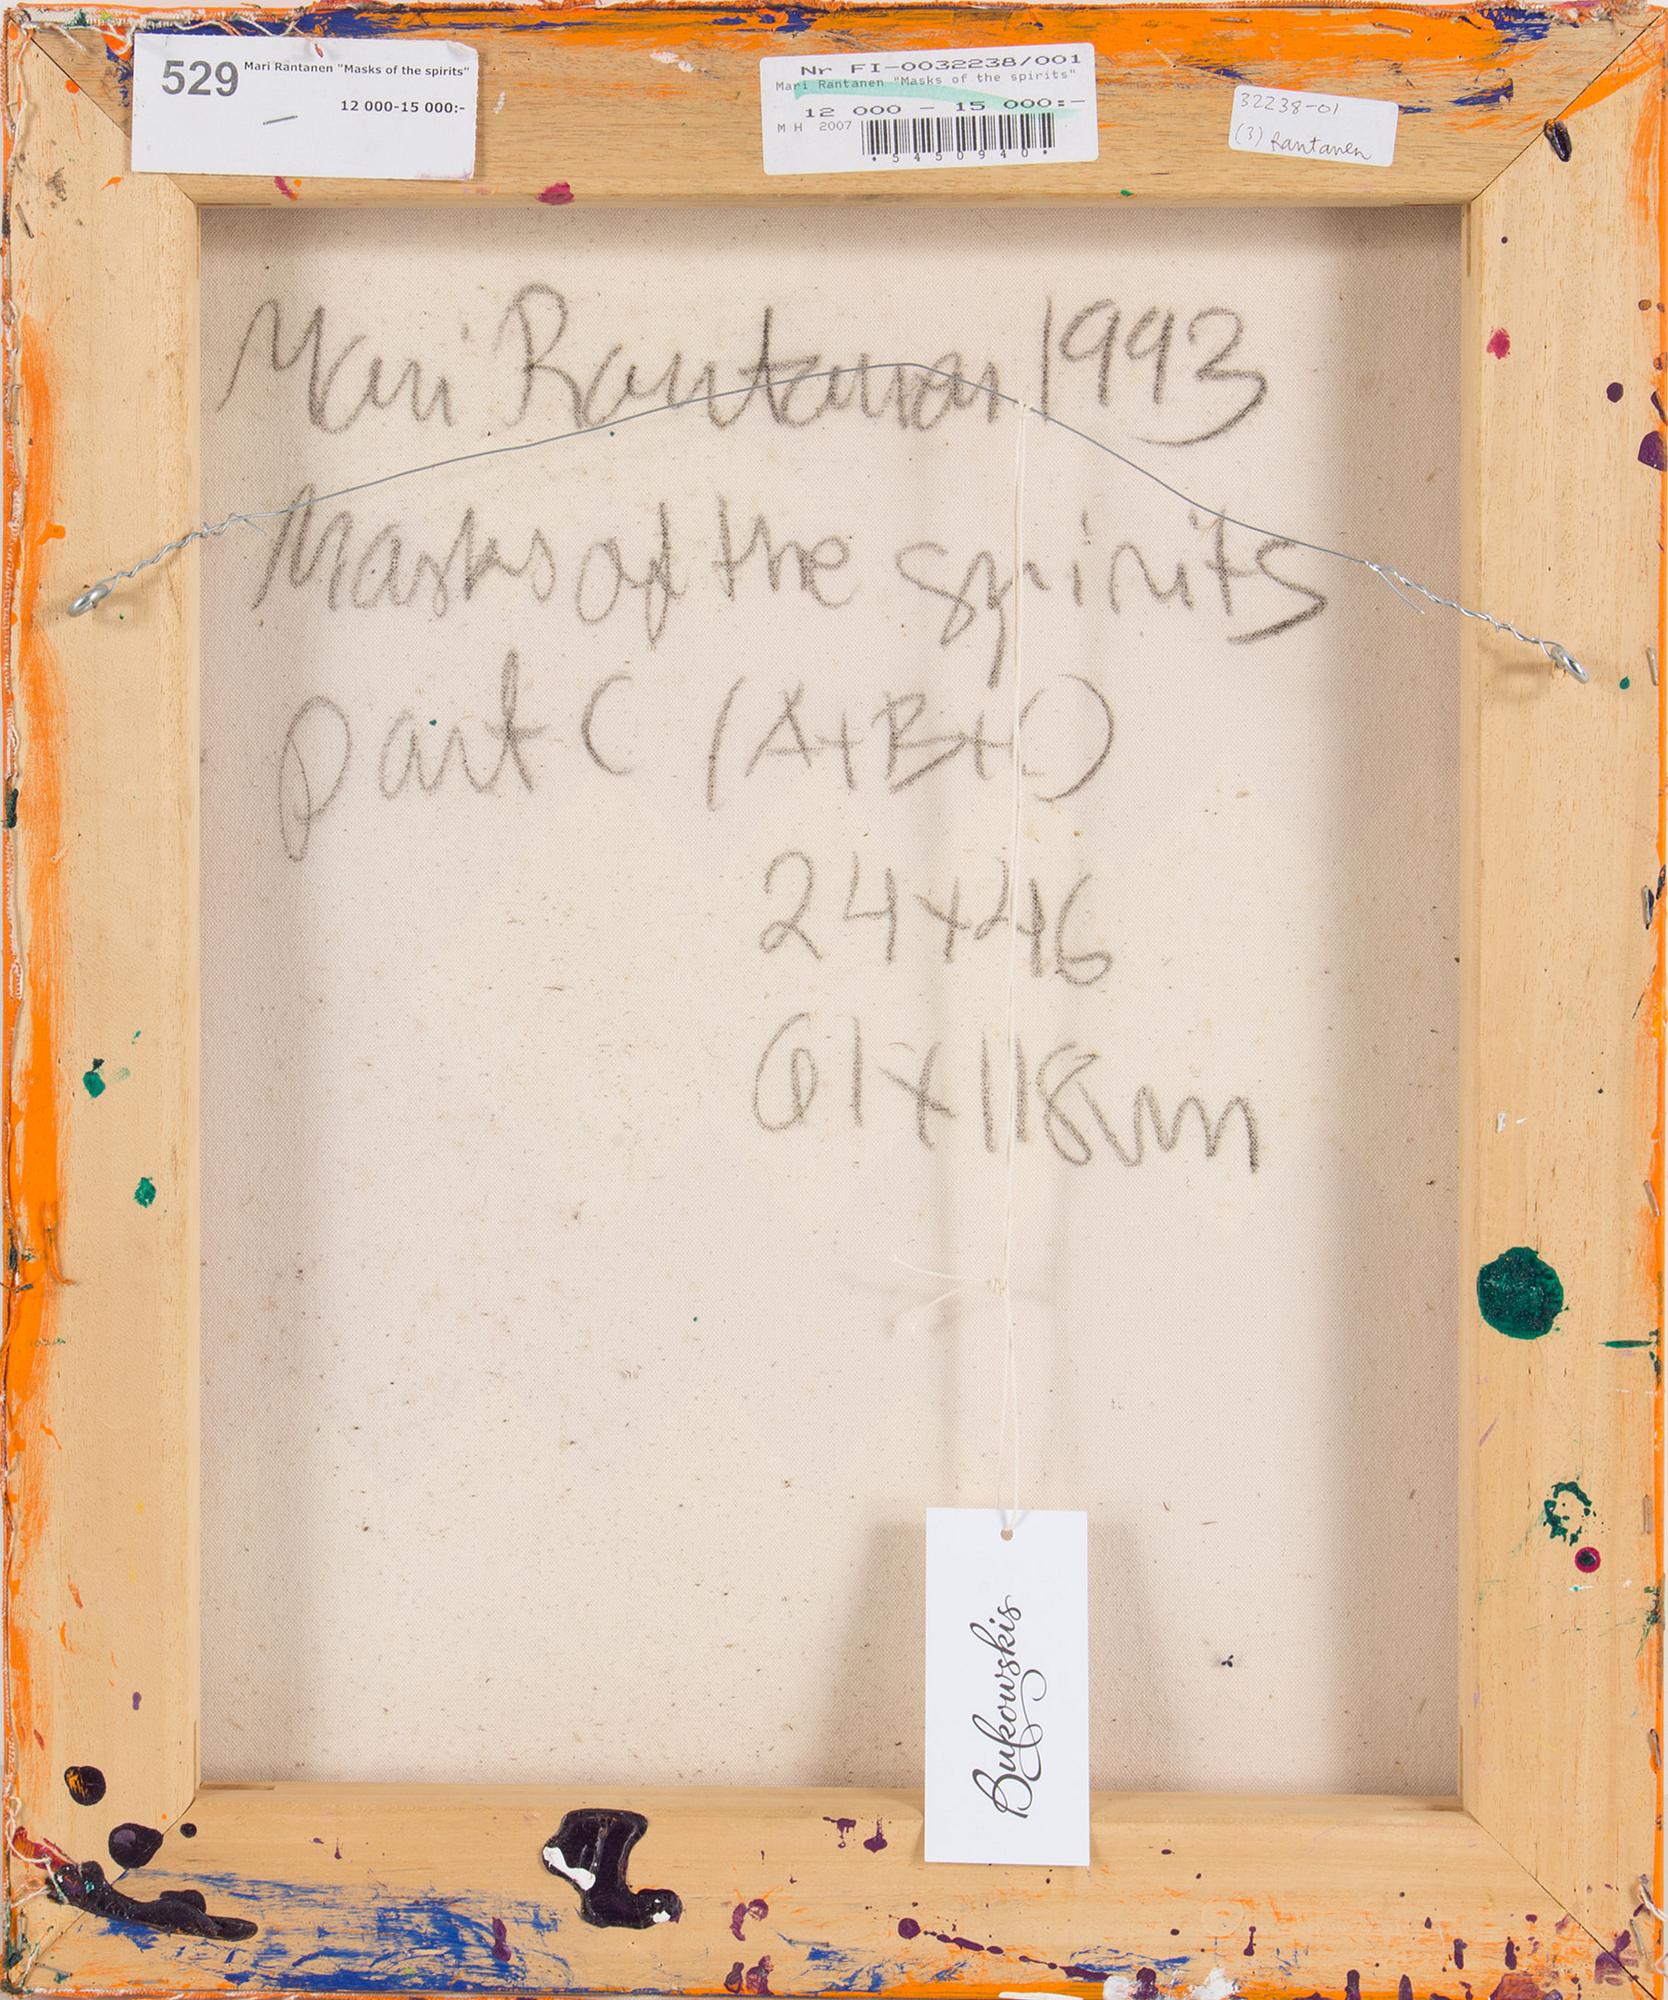 529 Mari Rantanen "Masks of the spirits"
12 000-15 000:-
Nr FI-0032238/001
Mari Rantanen "Masks of the spirits"
12 000 - 15 000:-
M H 2007
*5450940*
32238-01
(3) Rantanen
Mari Rantanen 1993
Masks of the spirits
part C (A+B+C)
24x46
61x118cm
Bukowskis